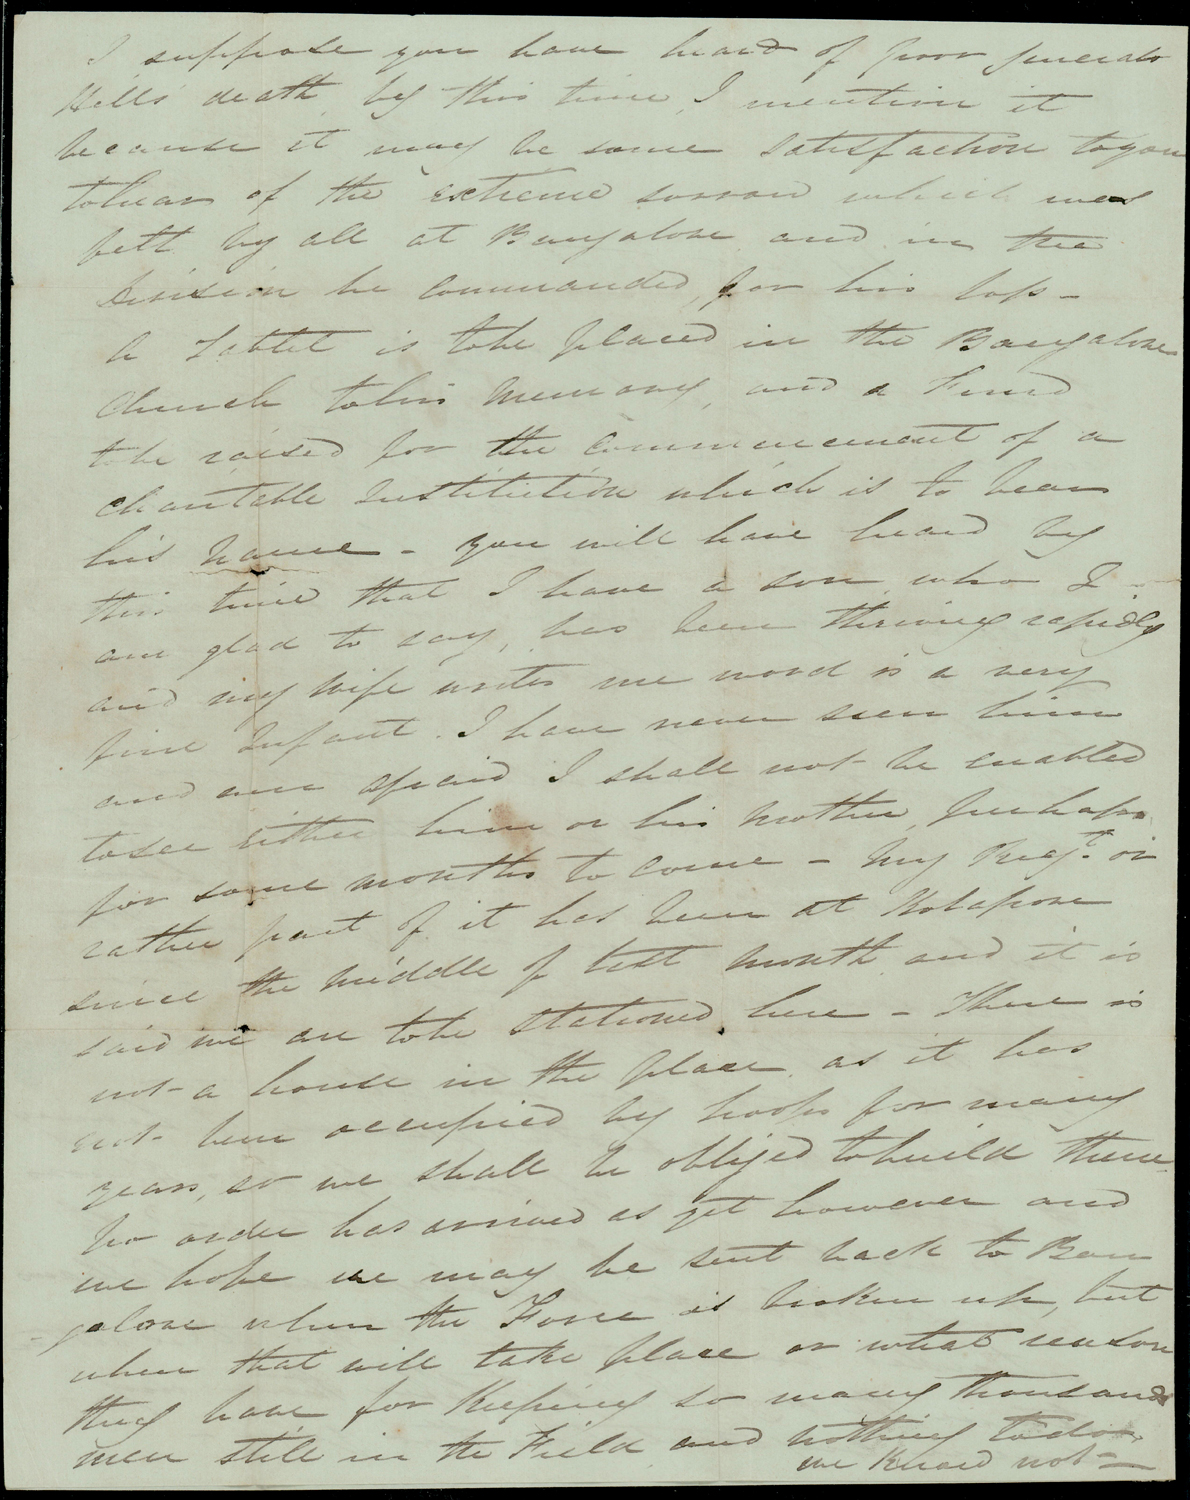 I suppose you have heard of poor Generals
Hills' death by this time, I mention it
because it may be some satisfaction to you
to hear of the extreme sorrow which was
felt by all at Bangalore and in the
division he commanded, for his loss -
A Tablet is to be placed in the Bangalore
Church to his memory, and a Fund
to be raised for the commencement of a
charitable Institution which is to bear
his name - you will have heard by
this time that I have a son, who I
am glad to say, has been thriving rapidly
and my wife writes me word is a very
fine Infant. I have never seen him
and am afraid I shall not be enabled
to see either him or his Mother, perhaps
for some months to come - My Regt. or
rather part of it has been at Kolapore
since the middle of last month and it is
said we are to be stationed here - There is
not a house in the place, as it has
not been occupied by troops for many
years, so we shall be obliged to build them
No order has arrived as yet however and
we hope we may be sent back to Ban
galore when the Force is broken up, but
when that will take place or what reason
they have for keeping so many thousand
men still in the Field and nothing to do,
we know not -